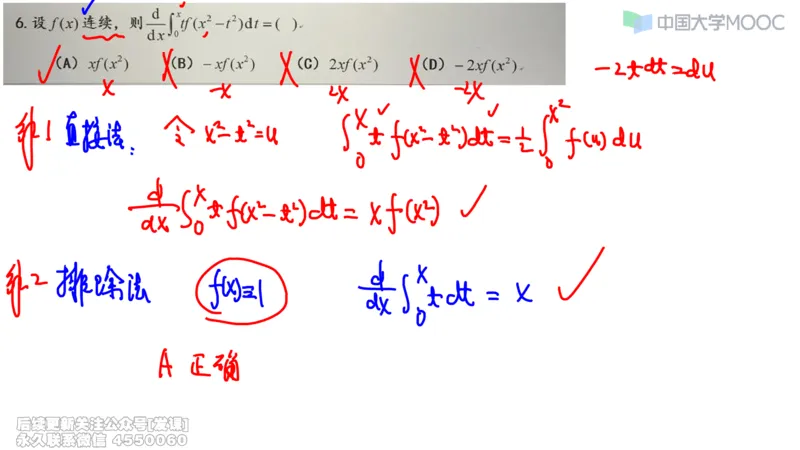 6. 设 f(x) 连续，则 d/dx ∫₀ˣ tf(x²−t²)dt = ( ).
中国大学MOOC
(A) xf(x²) (B) −xf(x²) (C) 2xf(x²) (D) −2xf(x²).
−2tdt=du
x −x 2x −2x
解1 直接法: 令 x²−t²=u ∫₀ˣ t f(x²−t²)dt = 1/2 ∫₀^x² f(u) du
d/dx ∫₀ˣ t f(x²−t²)dt = x f(x²) ✓
解2 排除法 f(x)≡1 d/dx ∫₀ˣ t dt = x ✓
A 正确
后续更新关注公众号[发课]
永久联系微信 4550060